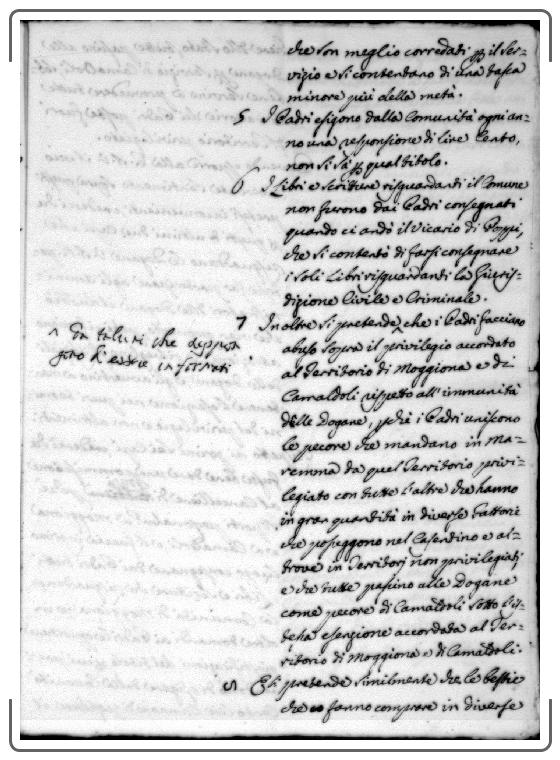 che son meglio corredati p il Ser-
vizio e si contendano di una tassa
minore più della metà.
5 I Padri esigono dalla Comunità ogni an-
no una responsione di lire Cento,
non si sà p qual titolo.
6 I Libri e Scritture risguardanti il Comune
non furono dai Padri consegnati
quando ci andò il Vicario di Poppi,
che si contentò di farsi consegnare
i soli Libri risguardanti la Giuris-
dizione Civile e Criminale.
7 Inoltre si pretende ^ che i Padri facciano
^ da taluni che
gono d'essere informati
abuso sopra il privilegio accordato
al Territorio di Moggiona e di
Camaldoli rispetto all'immunità
delle Dogane, pchè i Padri uniscono
le pecore che mandano in Ma-
remma da quel Territorio privi-
legiato con tutte l'altre che hanno
in gran quantità in diverse Fattorie
che posseggono nel Casentino e al-
trove in Territorj non privilegiati
e che tutte passino alle Dogane
come pecore di Camaldoli sotto l'is-
tessa esenzione accordata al Ter-
ritorio di Moggiona e di Camaldoli.
8 Si pretende similmente che le bestie
che fanno comprare in diverse